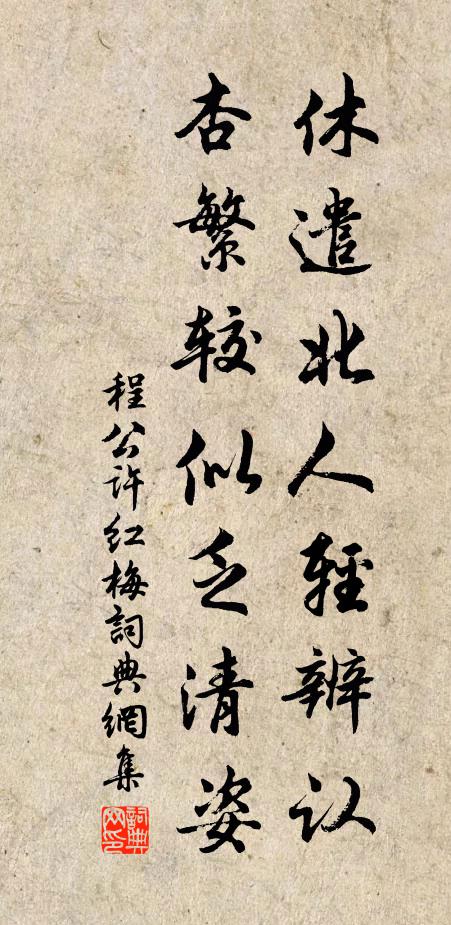 休遣北人輕辨认
杏繁较似乏清姿
程公许红梅詞典網集
詞典网印